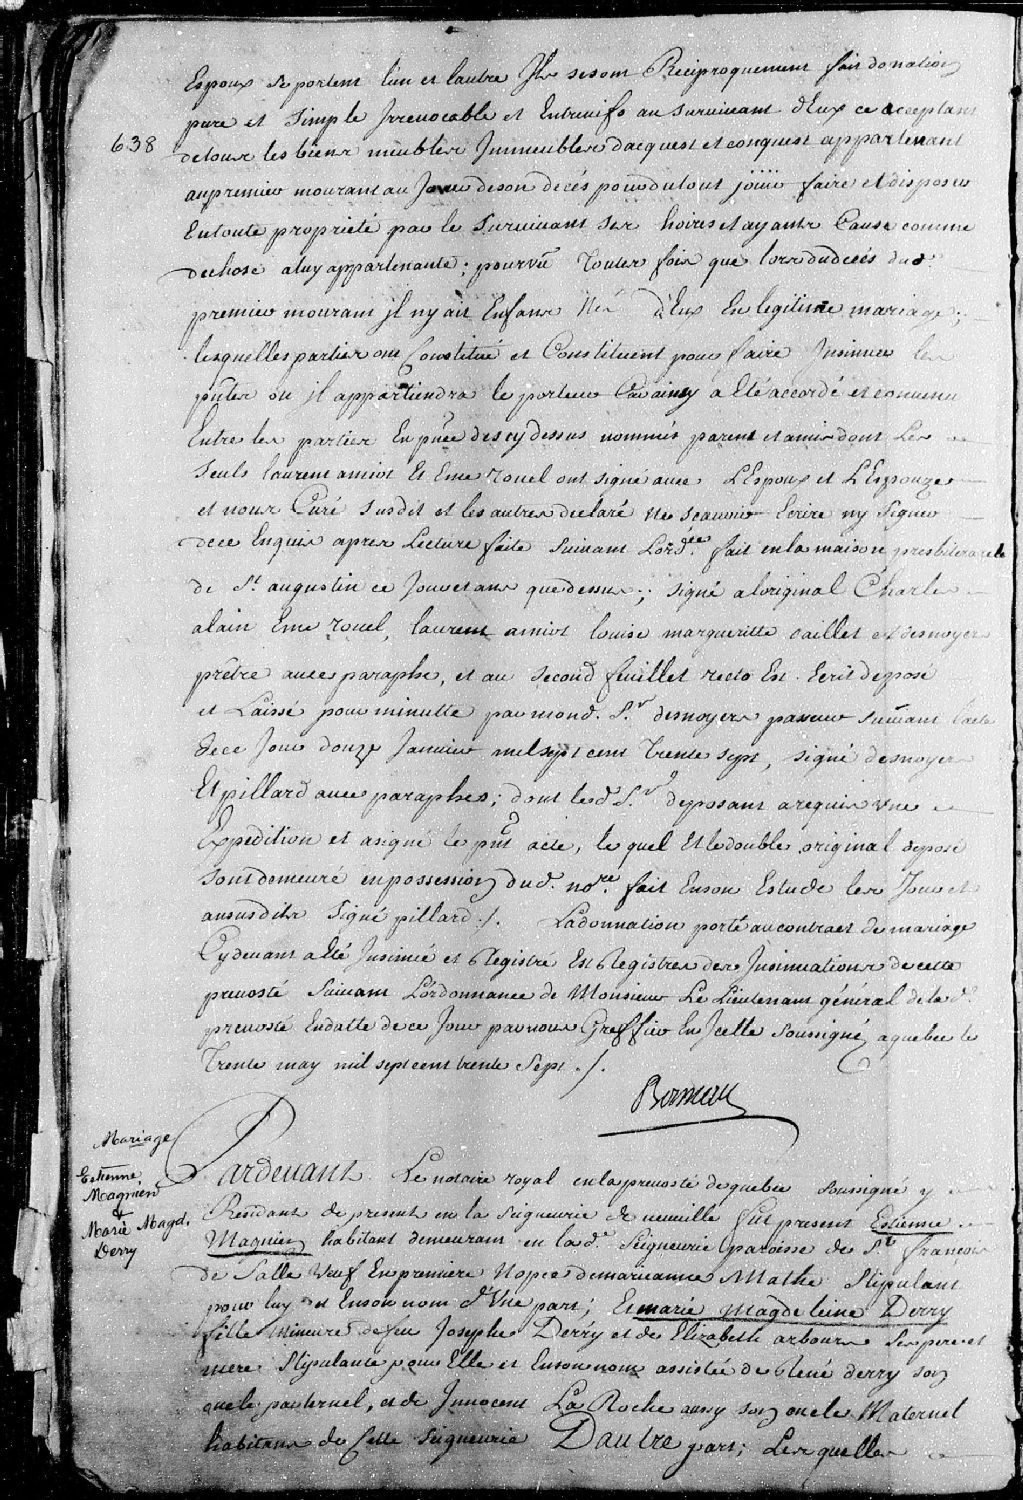 Espoux se portent lun et lautre Ils se sont Reciproquement fait donation
pure et simple Irrevocable et Entrevifs au survivant dEux ce acceptant
638
de tous les biens meubles Immeubles dacquest et conquest appartenant
au premier mourant au Jour de son decés pour du tout jouir faire et disposer
En toute propriété par le Survivant Ses hoirs et ayants Cause comme
de chose a luy appartenante ; pourvû toutes fois que lors du decés dud
premier mourant il ny ait Enfans Nés dEux En legitime mariage ;
lesquelles parties ont Constitué et Constituent pour faire Insinuer les
pñtes ou il appartiendra le porteur Car ainsy a Eté accordé et convenu
Entre les parties En pñce des cy dessus nommés parens et amis dont Les
Seuls laurent amiot Et Eme rouel ont signé avec LEspoux et LEspouze
et nous Curé susdit et les autres declaré Ne scavoir Ecrire ny Signer
de ce Enquis apres Lecture faite Suivant Lordce. fait en la maison presbiterale
de St. augustin ce Jour et ans que dessus ; signé a loriginal Charles
alain Eme rouel, laurent amiot louise margueritte vaillet et desnoyers
prêtre avec paraphe, et au second feuillet recto Est Ecrit deposé
et Laissé pour minutte par mond. Sr. desnoyers pareur Suivant lacte
de ce Jour douze Janvier mil sept cent trente sept, signé desnoyer
Et pillard avec paraphes ; dont led Sr. deposant a requis Une
Expedition et a signé le pñt acte, le quel Et le double original deposé
sont demeuré en possession dud. nore. fait En son Estude les Jour et
an susdits Signé pillard ./. La donnation porté au contract de mariage
Cy devant a Eté Insinué et Registré Es Registres des Insinuations de cette
prevosté Suivant Lordonnance de Monsieur Le Lieutenant général de lad.
prevosté En datte de ce Jour par nous Greffier En Icelle Soussigné a quebec le
Trente may mil sept cent trente Sept ./.
Boisseau
Mariage
Estienne
Magnien
&
Marie Magd.
Derry
Pardevant Le notaire royal en la prevosté de quebec soussigné y
Residant de present en la Seigneurie de neuville fut present Estienne
Magnien habitant demeurant en lad. Seigneurie paroisse de St. francois
de Salle Veuf En premiere Nopces de marianne Mathe Stipulant
pour luy et En son nom dUne part ; Et marie magdeleine Derry
fille mineure de feu Josephe Derry et de Elizabeth arbour Ses pere et
mere Stipulante pour Elle et En son nom assistée de René derry son
oncle paternel, et de Innocent La Roche aussy son oncle Maternel
habitans de Cette Seigneurie Dautre part ; Lesquelles